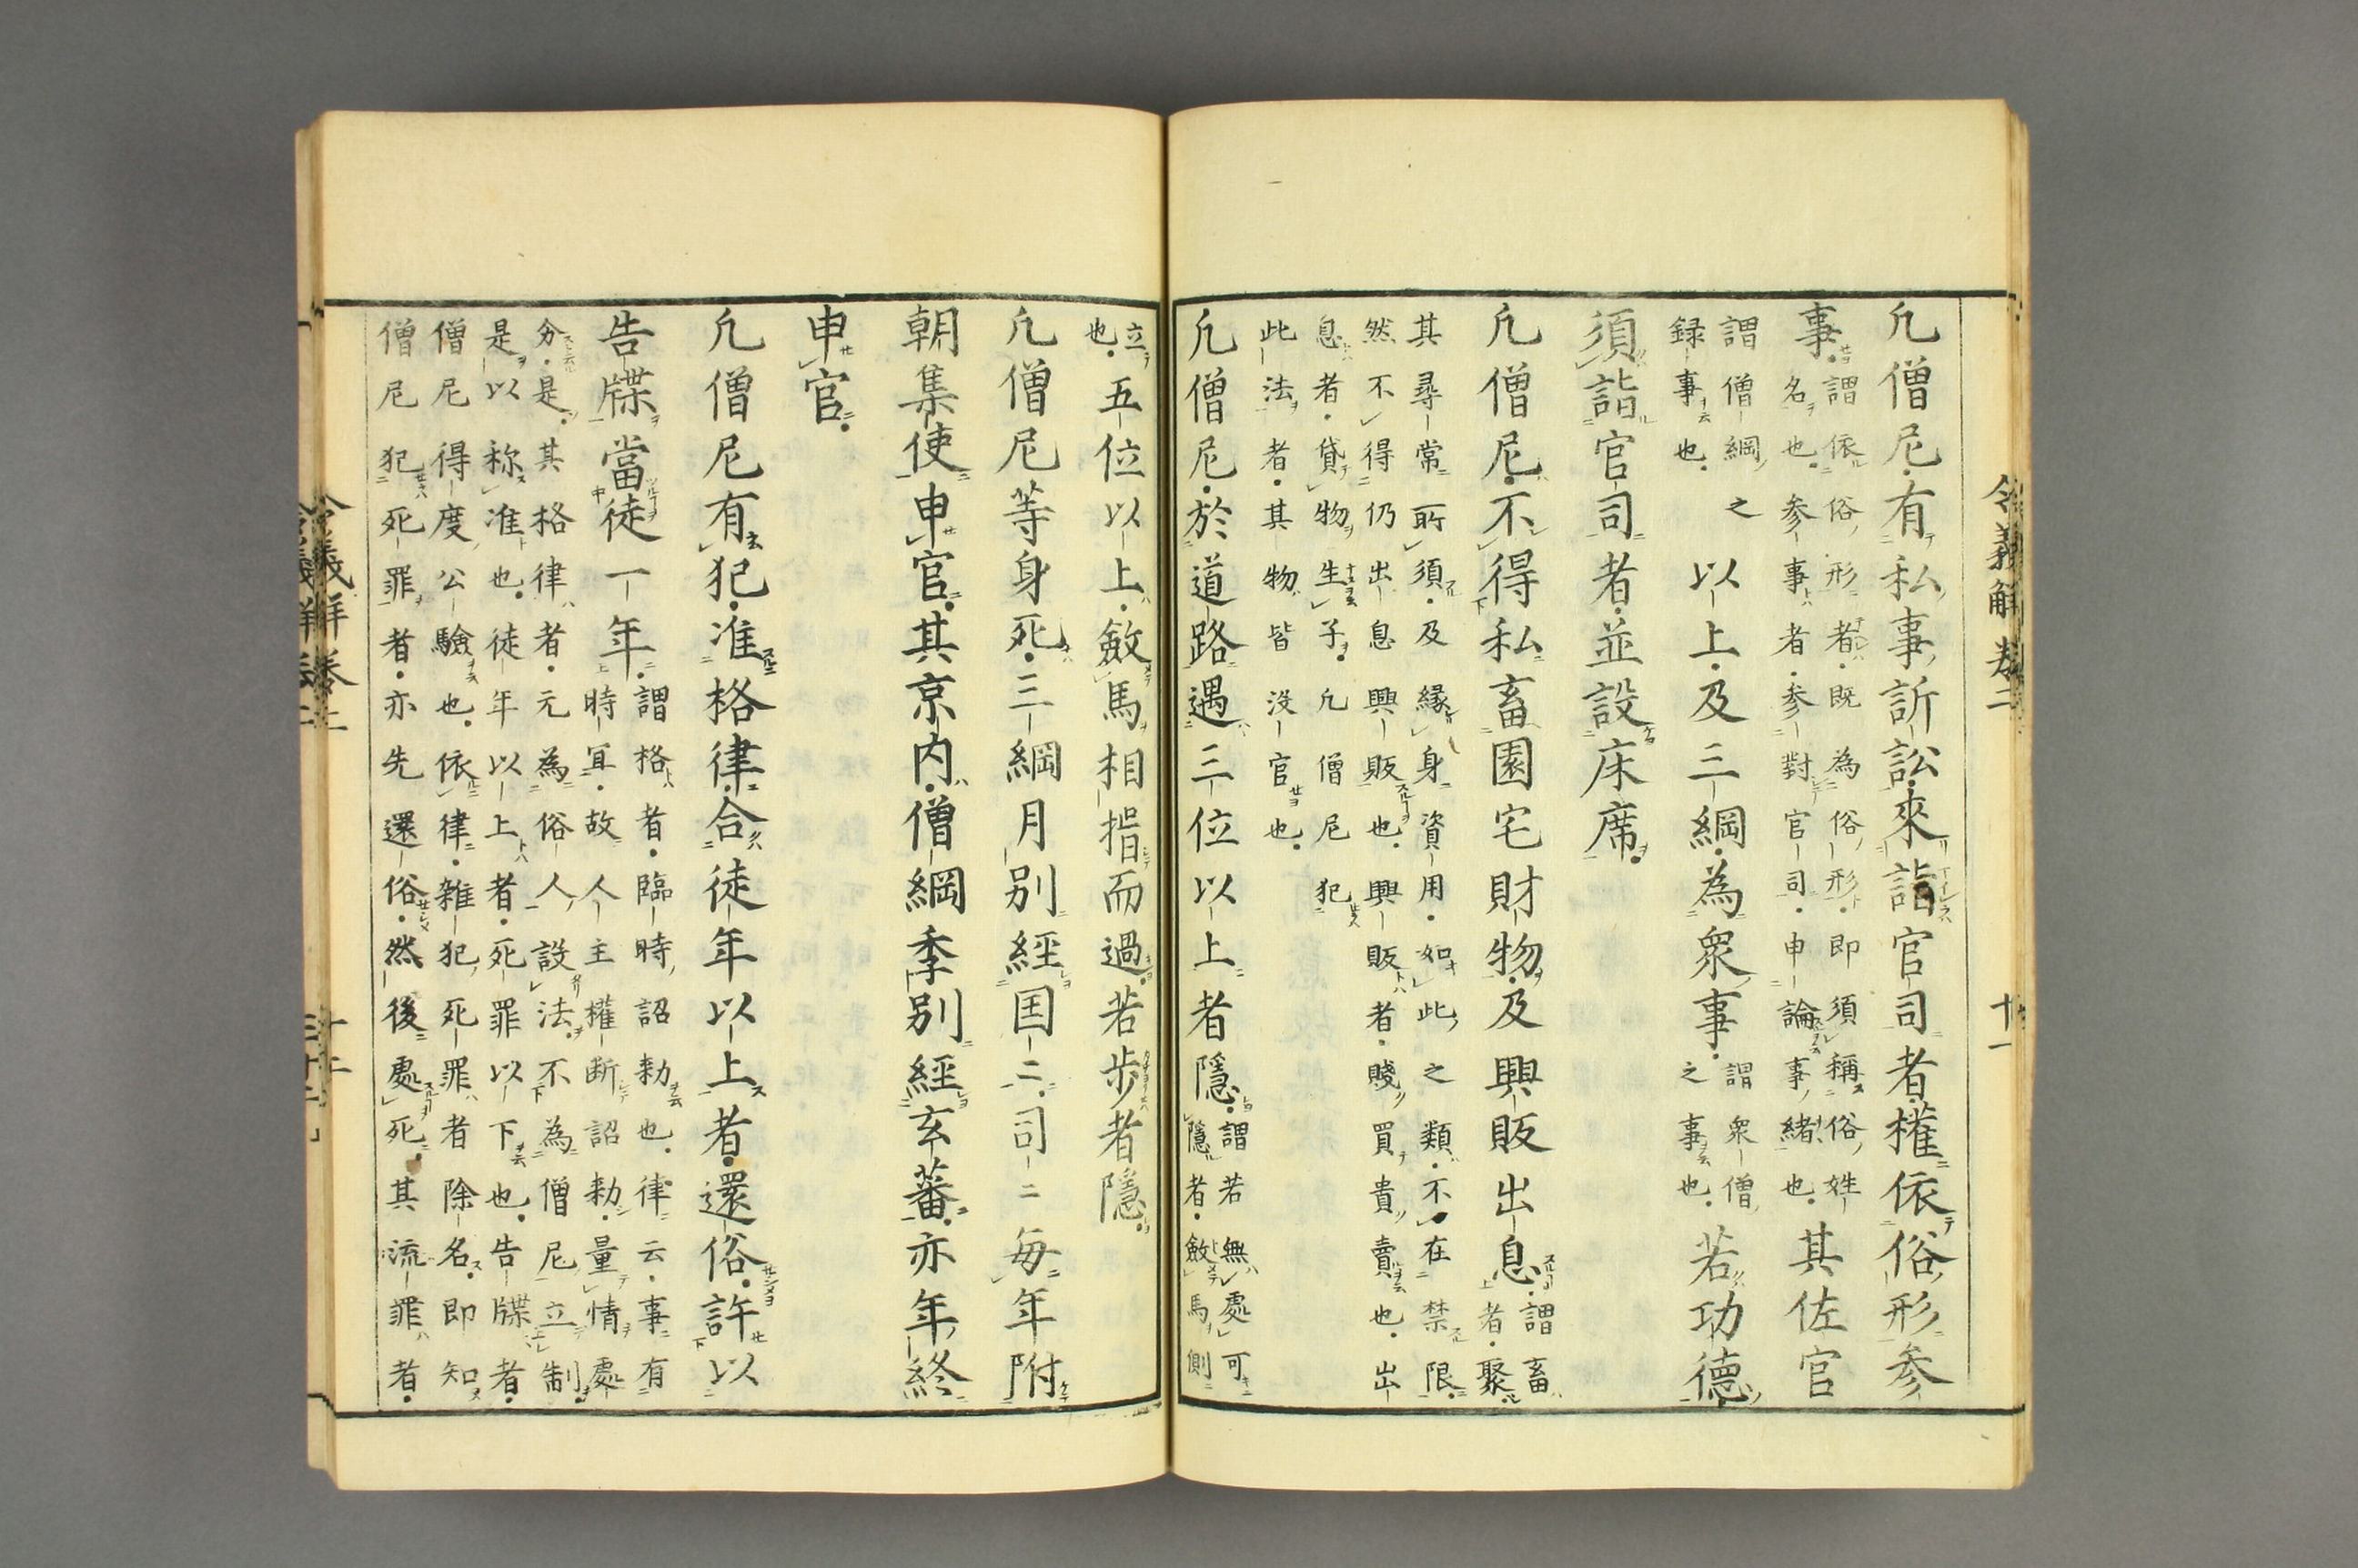 令義解巻二　十一
凢僧尼有私事訴訟來詣官司者權依俗形参
事
謂依俗形者既為俗形即須稱俗姓
名也参事者参對官司申論事緒也
其佐官
謂僧綱之
録事也
以上及三綱為衆事
謂衆僧
之事也
若功德
須詣官司者並設床席
凢僧尼不得私畜園宅財物及興販出息
謂畜
者聚
其尋常所須及緣身資用如此之類不在禁限
然不得仍出息興販也興販者賤買貴賣也出
息者貸物生子凢僧尼犯
此法者其物皆没官也
凢僧尼於道路遇三位以上者隱
謂若無處可
隱者斂馬側
立
也
五位以上斂馬相揖而過若歩者隱
凢僧尼等身死三綱月別經囯二司二毎年附
朝集使申官其京内僧綱季別經玄蕃亦年終
申官
凢僧尼有犯准格律合徒年以上者還俗許以
告牒當徒一年
謂格者臨時詔勅也律云事有
時冝故人主權断詔勅量情處
分是其格律者元為俗人設法不為僧尼立制
是以称准也徒年以上者死罪以下也告牒者
僧尼得度公驗也依律雜犯死罪者除名即知
僧尼犯死罪者亦先還俗然後處死其流罪者